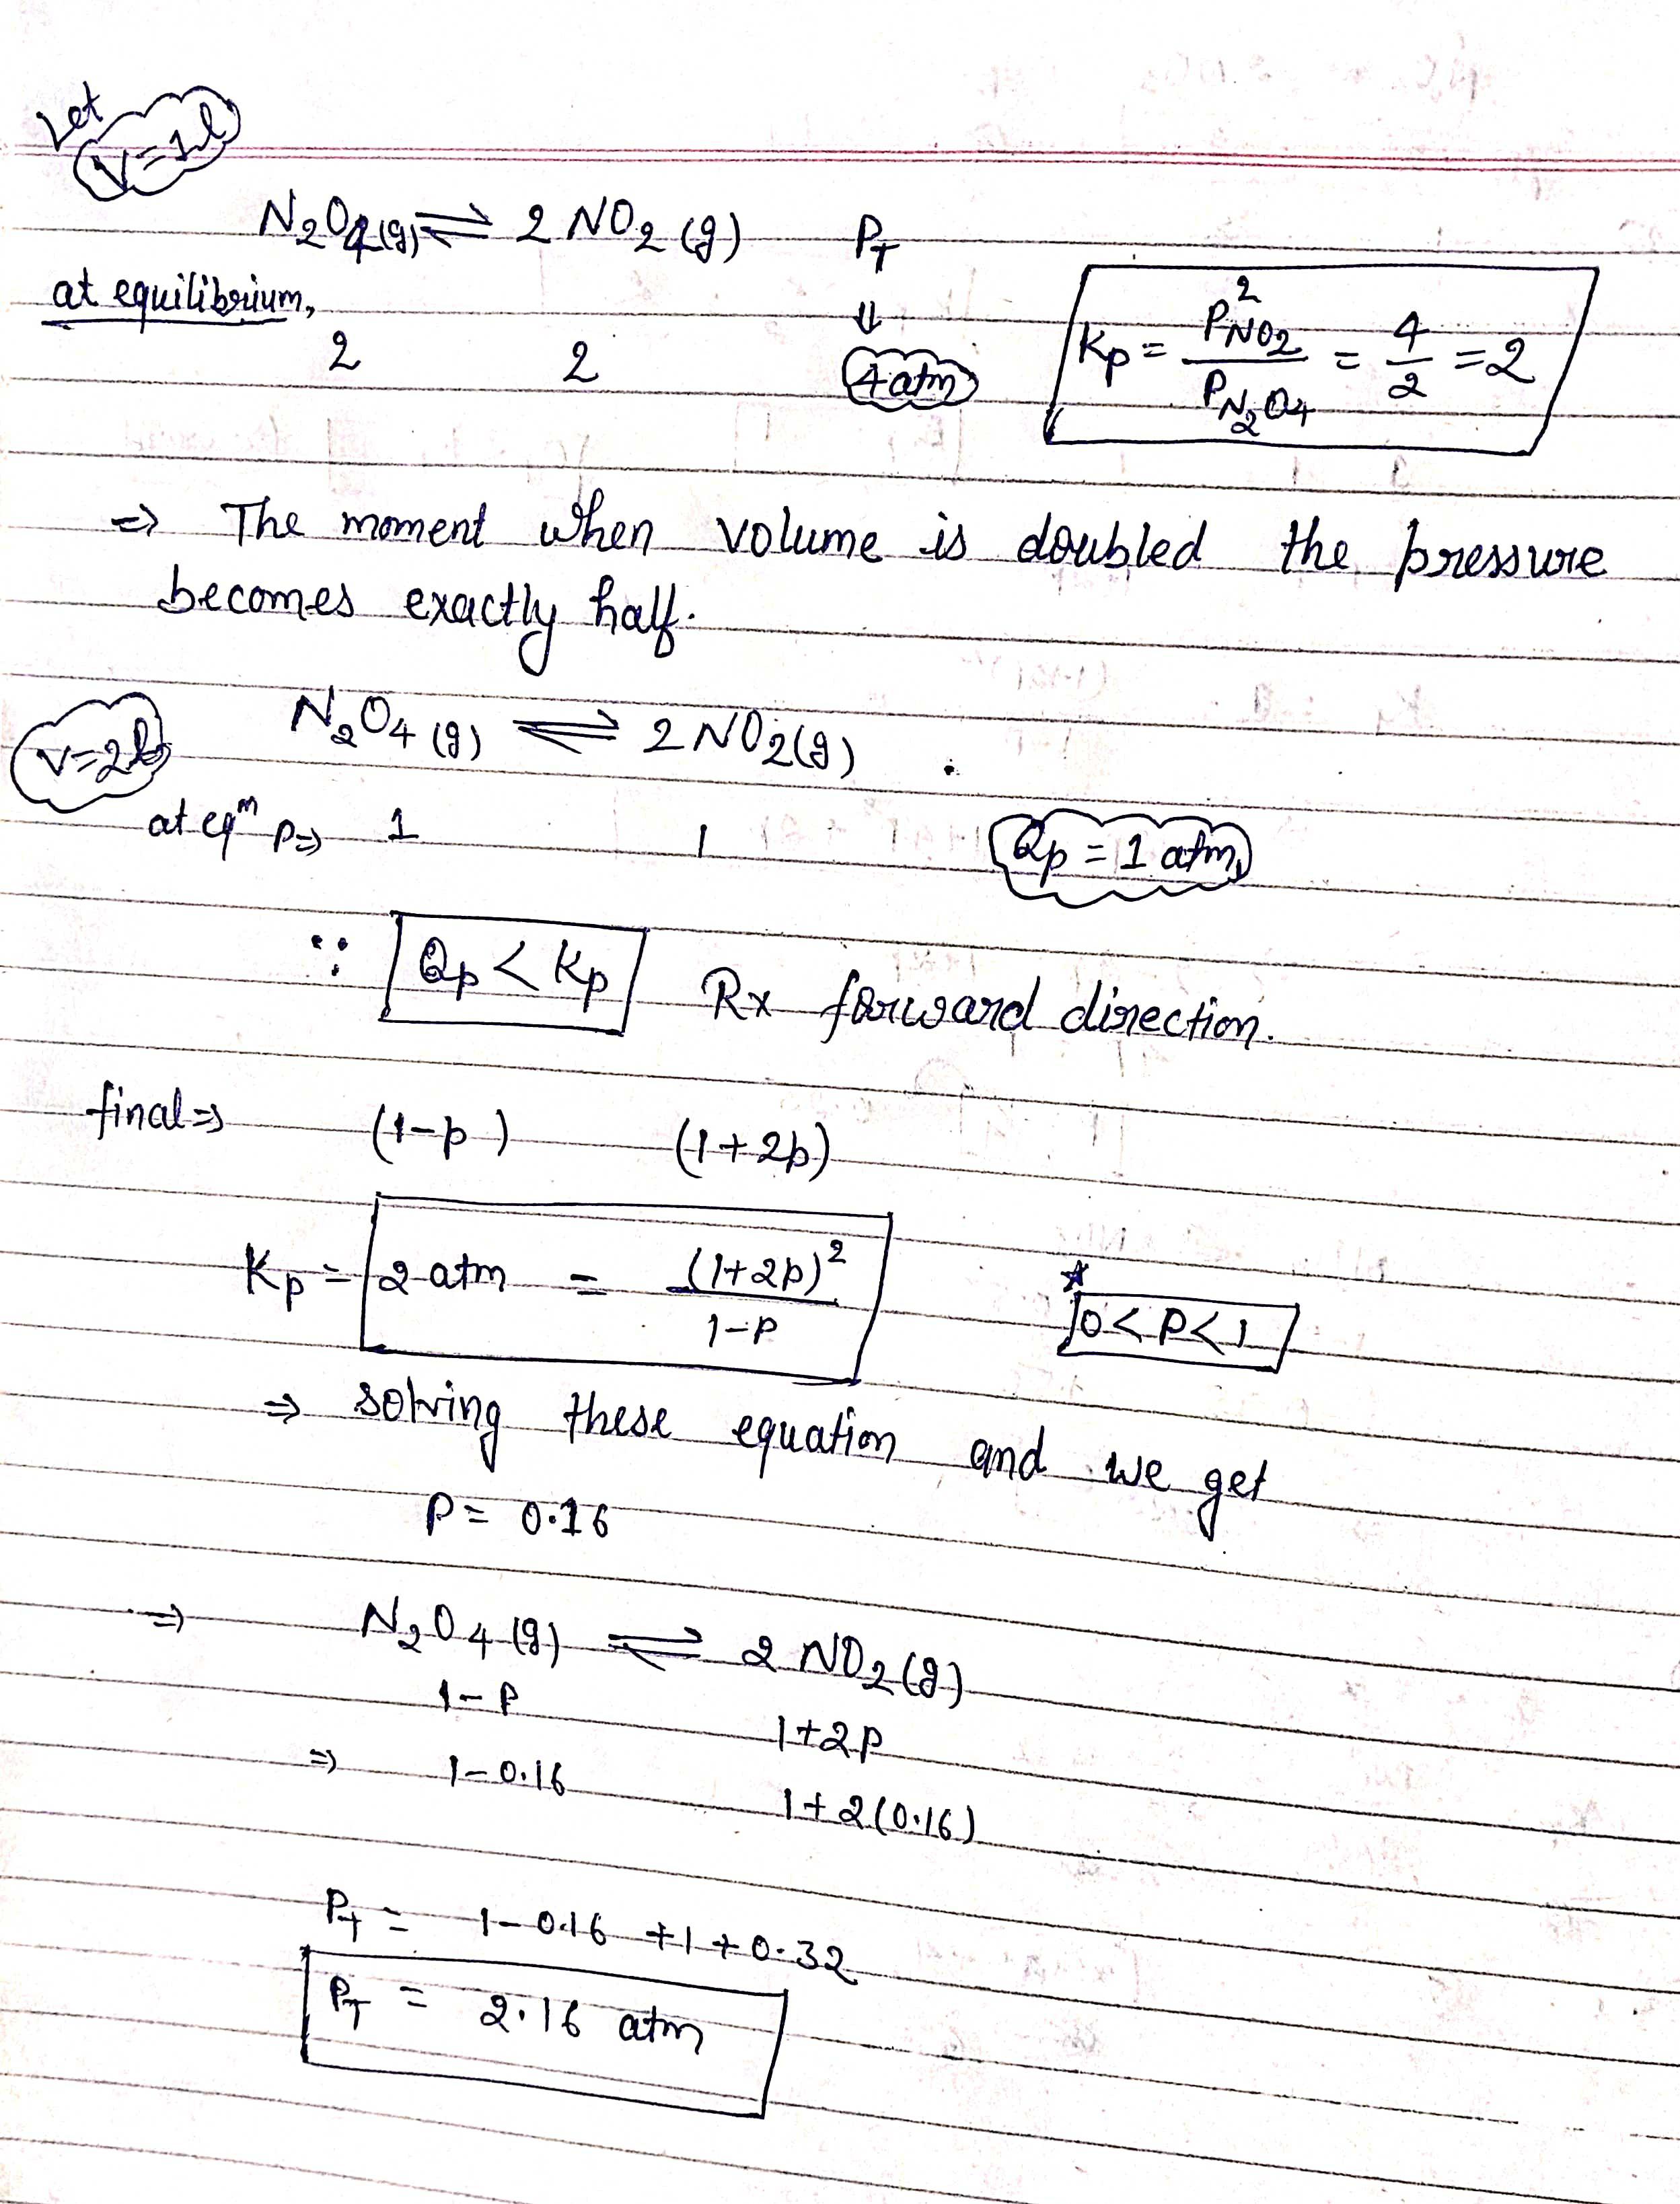 Let
V=1l
N₂O₄(g) ⇌ 2 NO₂ (g) P_T
at equilibrium, ⇓
2 2 4 atm
Kp = P²NO₂ / PN₂O₄ = 4/2 = 2
⇒ The moment when volume is doubled the pressure
becomes exactly half.
V=2l
N₂O₄ (g) ⇌ 2 NO₂(g)
at eqᵐ P⇒ 1 1 Qp = 1 atm
∵ Qp < Kp Rx forward direction.
final⇒ (1-p) (1+2p)
Kp = 2 atm = (1+2p)² / 1-P
* 0 < P < 1
⇒ solving these equation and we get
P = 0.16
⇒ N₂O₄ (g) ⇌ 2 NO₂ (g)
1-P 1+2P
⇒ 1-0.16 1+2(0.16)
P_T = 1-0.16 +1+0.32
P_T = 2.16 atm